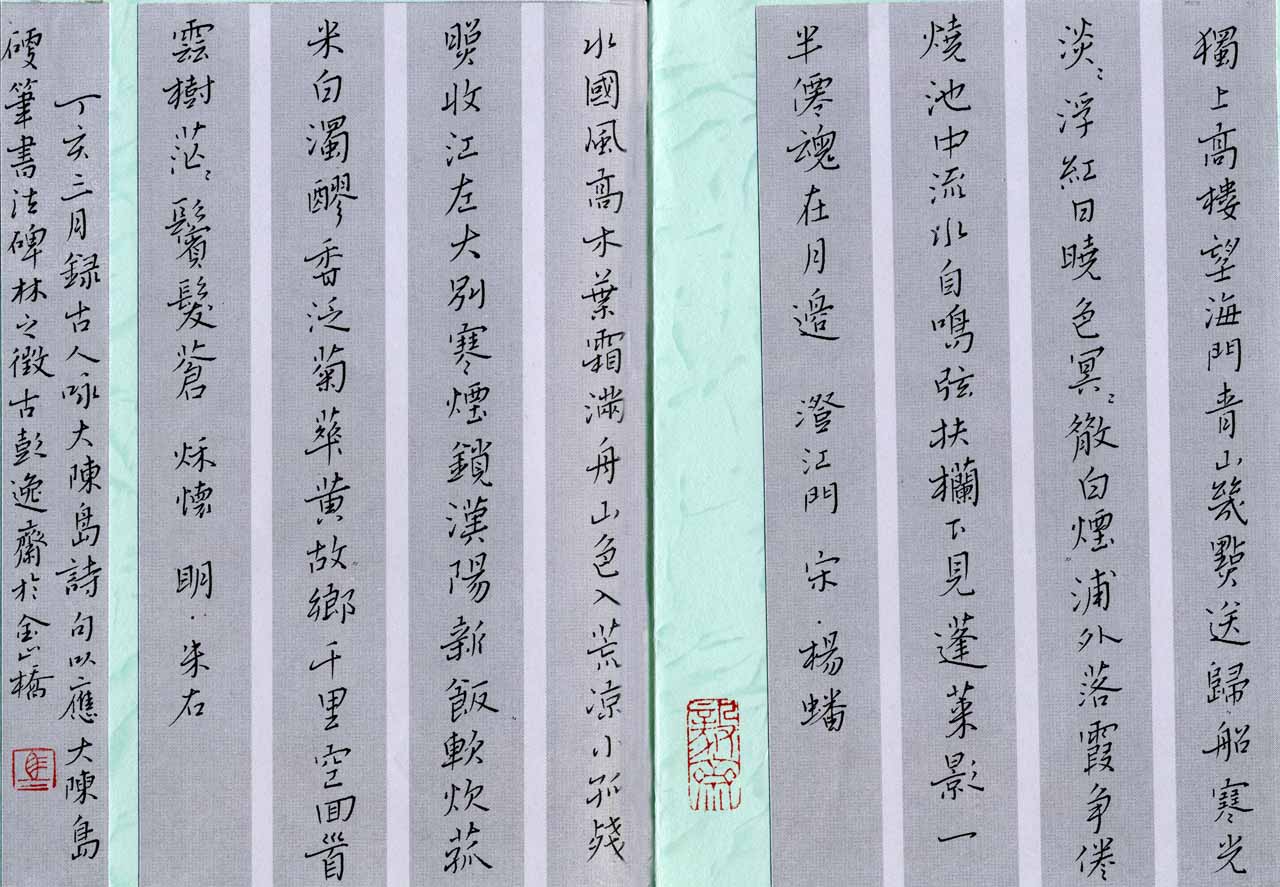 獨上高樓望海門青山幾點送歸船寒光
淡〻浮紅日曉色冥〻徹白煙浦外落霞爭倦
燒池中流水自鳴弦扶欄下見蓬萊影一
半僊魂在月邊　澄江門　宋·楊蟠
水國風高木葉霜滿舟山色入荒涼小孤殘
照收江左大別寒煙鎖漢陽新飯軟炊菰
米白濁醪香泛菊華黃故鄉千里空回首
雲樹茫〻鬢髮蒼　秋懷　明·朱右
丁亥三月録古人咏大陳島詩句以應大陳島
硬筆書法碑林之徵古彭逸齋於金山橋